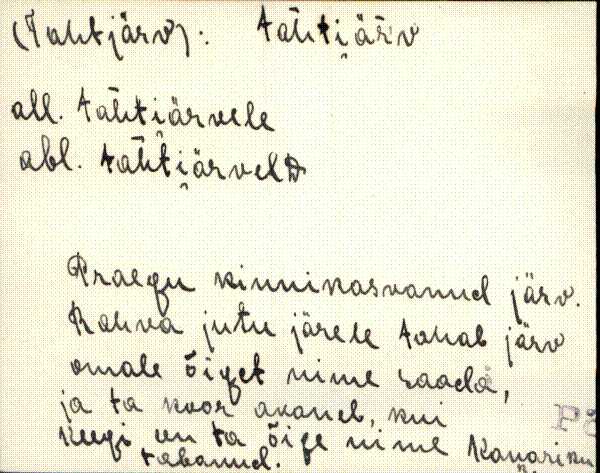 (Tahtjärv): tȧhti̯ärv
all. tȧhti̯ärvele
abl. tȧhti̯ärveld
Praegu kinnikasvanud järv.
Rahva jutu järele tahab järv
omale õiget nime saada,
ja ta koor avaneb, kui
keegi on ta õige nime
tabanud.